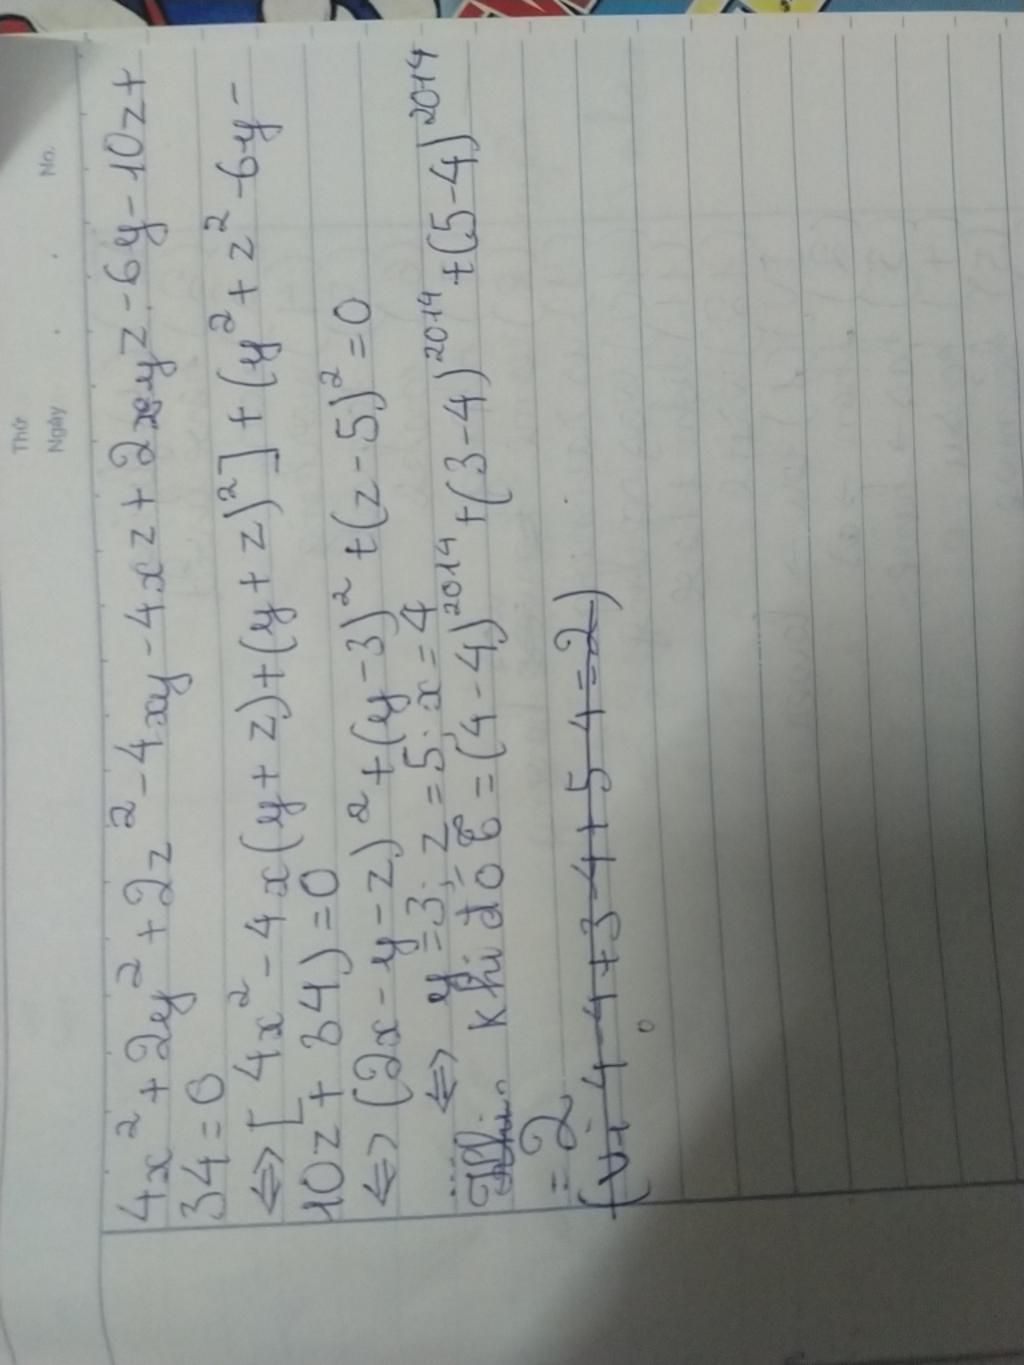 Thứ
Ngày
No.
4x² + 2y² + 2z² - 4xy - 4xz + 2yz - 6y - 10z +
34 = 0
⇔ [4x² - 4x(y + z) + (y + z)²] + (y² + z² - 6y -
10z + 34) = 0
⇔ (2x - y - z)² + (y - 3)² + (z - 5)² = 0
⇔ y = 3; z = 5; x = 4
Khi đó = (4 - 4)²⁰¹⁴ + (3 - 4)²⁰¹⁴ + (5 - 4)²⁰¹⁴
= 2
(Vì 4 - 4 + 3 - 4 + 5 4 = 2)